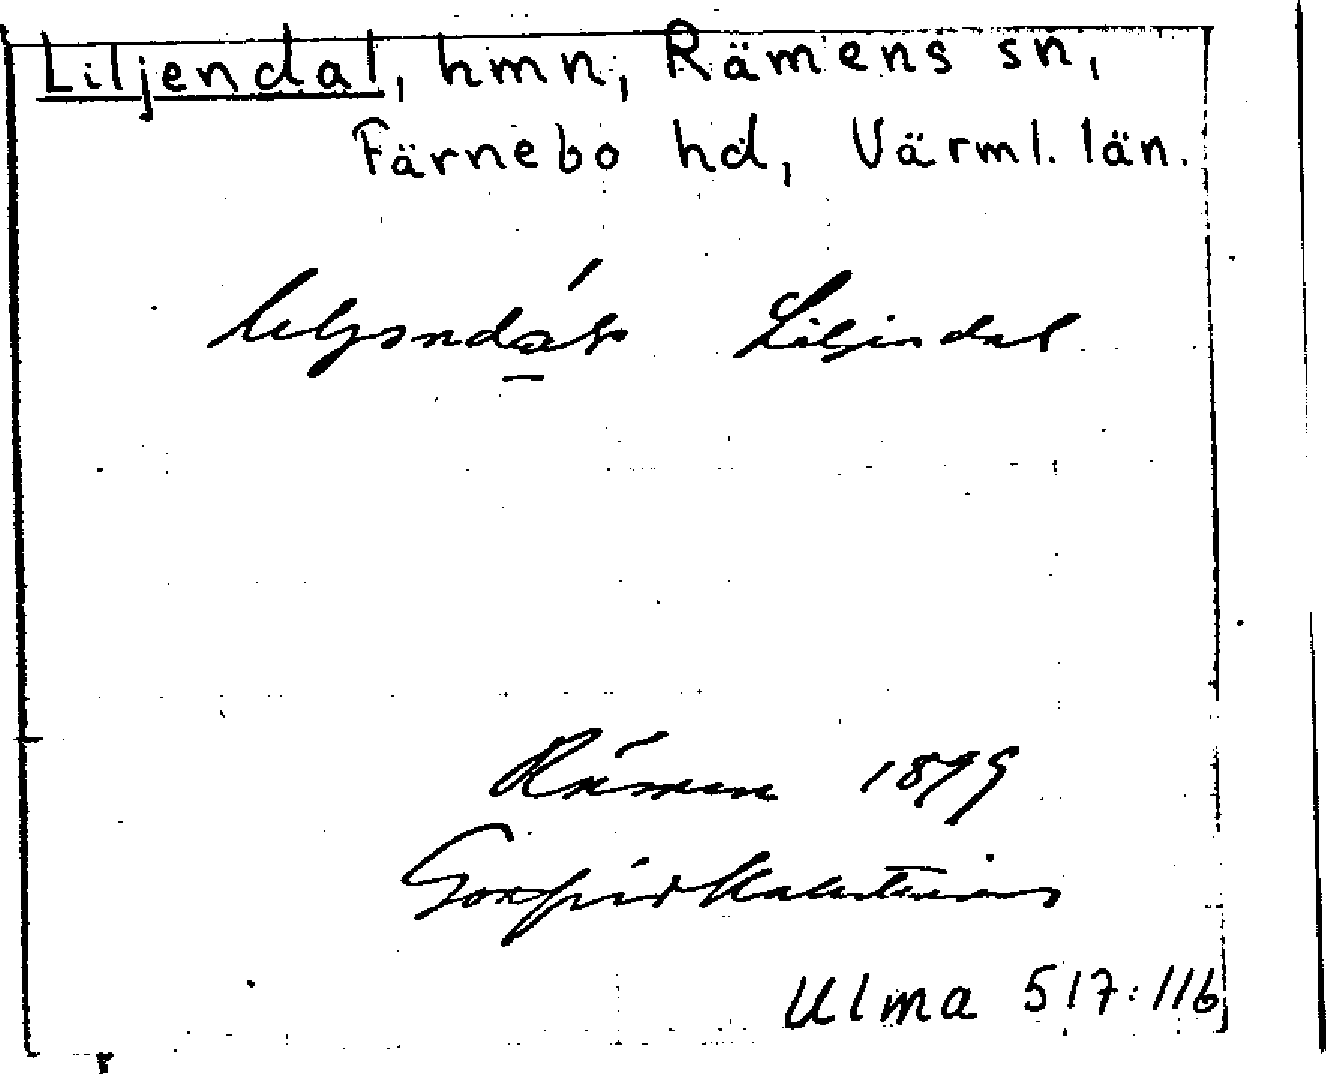 Liljendal, hmn, Rämens sn,
Färnebo hd, Värml. län.
Liljendal
Rämen 1899
Gotfrid Kallstenius
Ulma 517:116